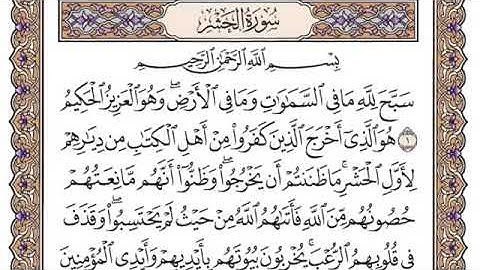 سُورَةُ الْحَشْرِ
بِسْمِ اللَّهِ الرَّحْمَٰنِ الرَّحِيمِ
سَبَّحَ لِلَّهِ مَا فِي السَّمَٰوَٰتِ وَمَا فِي الْأَرْضِ ۖ وَهُوَ الْعَزِيزُ الْحَكِيمُ
١ هُوَ الَّذِي أَخْرَجَ الَّذِينَ كَفَرُوا مِنْ أَهْلِ الْكِتَٰبِ مِن دِيَٰرِهِمْ
لِأَوَّلِ الْحَشْرِ ۚ مَا ظَنَنتُمْ أَن يَخْرُجُوا ۖ وَظَنُّوا أَنَّهُم مَّانِعَتُهُمْ
حُصُونُهُم مِّنَ اللَّهِ فَأَتَىٰهُمُ اللَّهُ مِنْ حَيْثُ لَمْ يَحْتَسِبُوا ۖ وَقَذَفَ
فِي قُلُوبِهِمُ الرُّعْبَ ۚ يُخْرِبُونَ بُيُوتَهُم بِأَيْدِيهِمْ وَأَيْدِي الْمُؤْمِنِينَ